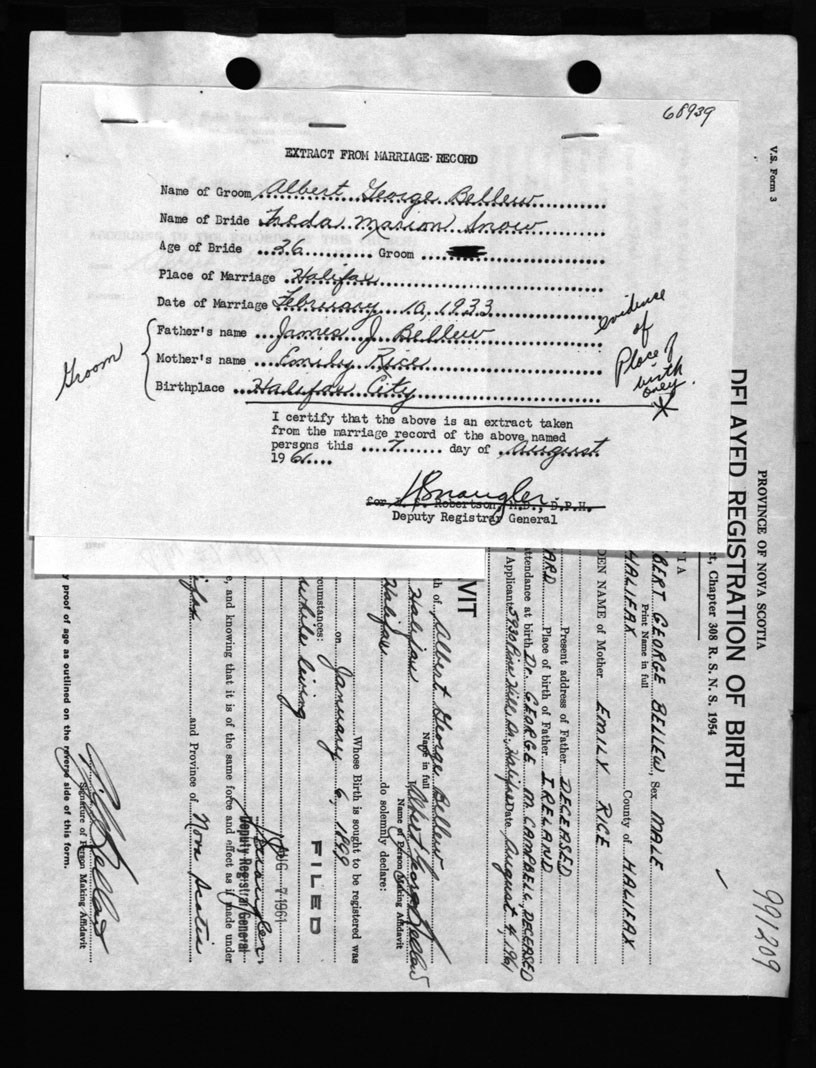 68939
EXTRACT FROM MARRIAGE RECORD
Name of Groom Albert George Bellew
Name of Bride Freda Marion Snow
Age of Bride 26 Groom
Place of Marriage Halifax
Date of Marriage February 10, 1933
Groom
Father's name James J Bellew
Mother's name Emily Rice
Birthplace Halifax City
evidence
of
Place of
birth
only
I certify that the above is an extract taken
from the marriage record of the above named
persons this 7 day of August
1961
for Robertson, M.D., D.P.H.
Deputy Registrar General
V.S. Form 3
PROVINCE OF NOVA SCOTIA
DELAYED REGISTRATION OF BIRTH
Chapter 308 R. S. N. S. 1954
991209
BERT GEORGE BELLEW, Sex MALE
Print Name in full
HALIFAX County of HALIFAX
DEN NAME of Mother EMILY RICE
Present address of Father DECEASED
ARD Place of birth of Father IRELAND
attendance at birth Dr. GEORGE M. CAMPBELL, DECEASED
Applicant 5930 Pine Hill Dr., Halifax Date August 4, 1961
VIT
th of Albert George Bellew
Name in full
Halifax I Albert George Bellew
Name of Person Making Affidavit
Halifax do solemnly declare:
Whose Birth is sought to be registered was
on January 6, 1899
rcumstances: FILED
white living
AUG 7 1961
Deputy Registrar General
e, and knowing that it is of the same force and effect as if made under
and Province of Nova Scotia
Signature of Person Making Affidavit
y proof of age as outlined on the reverse side of this form.